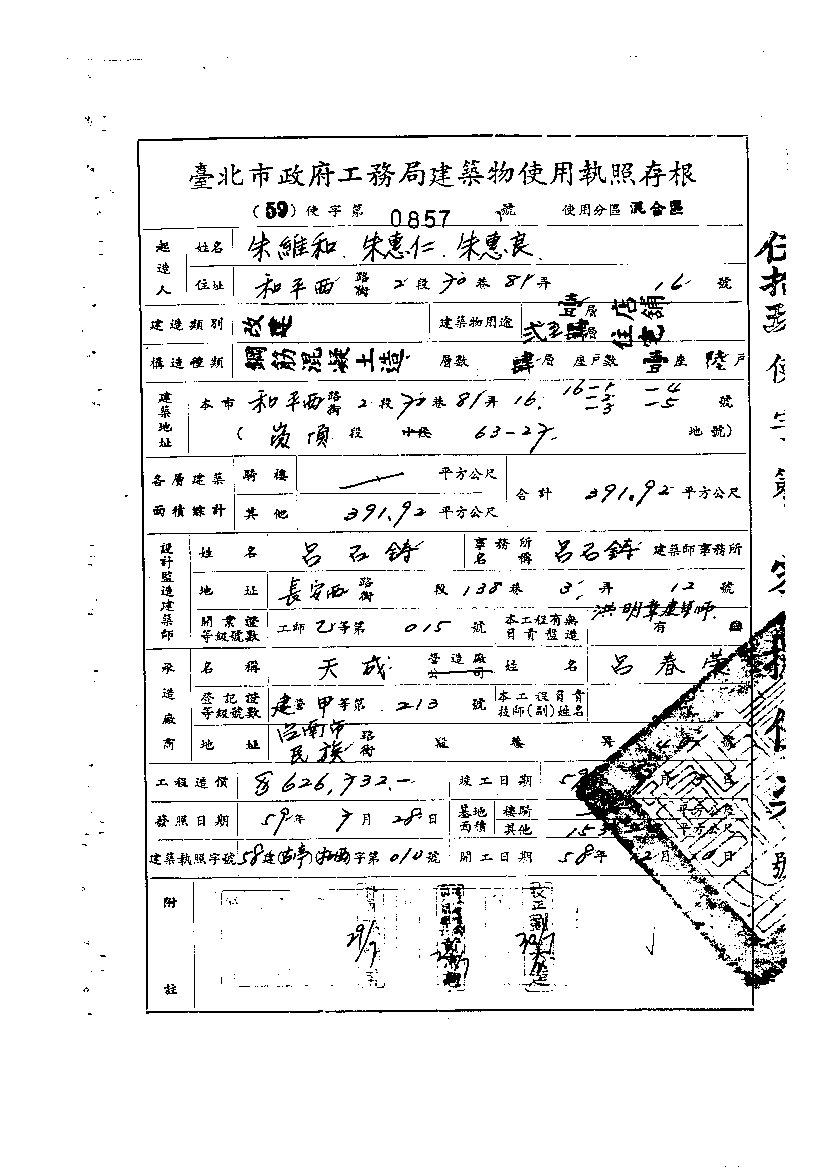 臺北市政府工務局建築物使用執照存根
(59)使字第 0857 號 使用分區 混合區
起造人 姓名 朱維和、朱惠仁、朱惠良
住址 和平西 路街 2 段 70 巷 81 弄 16 號
建造類別 改建 建築物用途 層 店舖 層 住宅
構造種類 鋼筋混凝土造 層數 肆層 座戶數 座 陸戶
建築地址 本市 和平西 路街 2 段 70 巷 81 弄 16. 16-1 -2 -3 -4 -5 號
( 崁頂 段 小段 63-27. 地號)
各層建築面積總計 騎樓 平方公尺 合計 391.92 平方公尺
其他 391.92 平方公尺
設計監造建築師 姓名 呂石鑄 事務所名稱 呂石鑄 建築師事務所
地址 長安西 路街 段 138 巷 3 弄 12 號
開業證等級號數 工師 乙等第 015 號 本工程有無負責監造 有 洪明章建築師
承造廠商 名稱 天成 營造廠公司 姓名 呂春榮
登記證等級號數 建營甲等第 213 號 本工程負責技師(副)姓名
地址 台南市民族 路街 段 巷 弄 號
工程造價 626,732.- 竣工日期 59
發照日期 59年 7月 28日 基地面積 騎樓 平方公尺
其他 平方公尺
建築執照字號 58建 字第 010 號 開工日期 58年 12月 日
附註
29/7